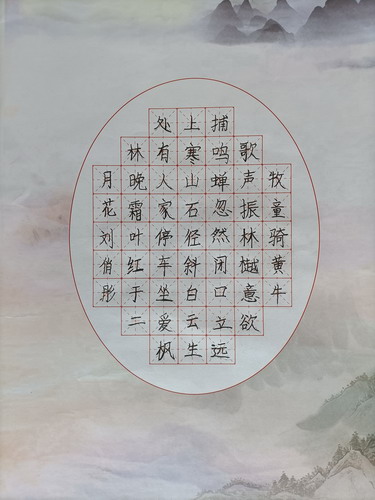 牧童骑黄牛
歌声振林樾意欲
捕鸣蝉忽然闭口立远
上寒山石径斜白云生
处有人家停车坐爱枫
林晚霜叶红于二
月花刘俏彤